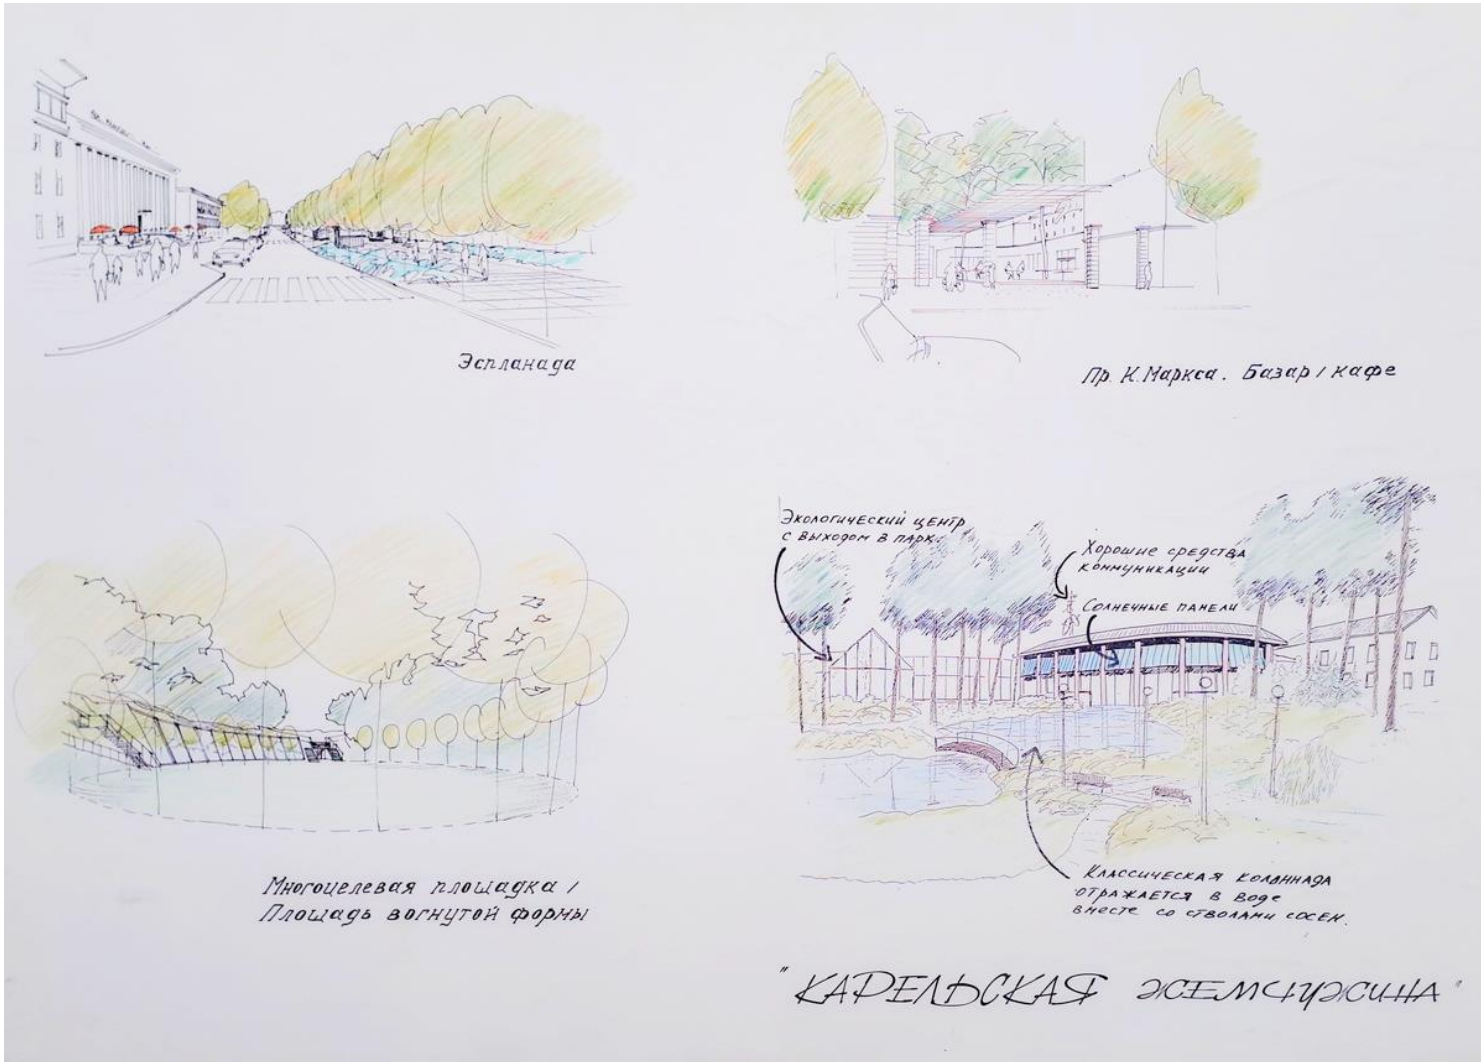 Эспланада
Пр. К. Маркса. Базар / кафе
Экологический центр
с выходом в парк.
Хорошие средства
коммуникации
Солнечные панели
Многоцелевая площадка /
Площадь вогнутой формы
Классическая колоннада
отражается в воде
вместе со стволами сосен.
"КАРЕЛЬСКАЯ ЖЕМЧУЖИНА"